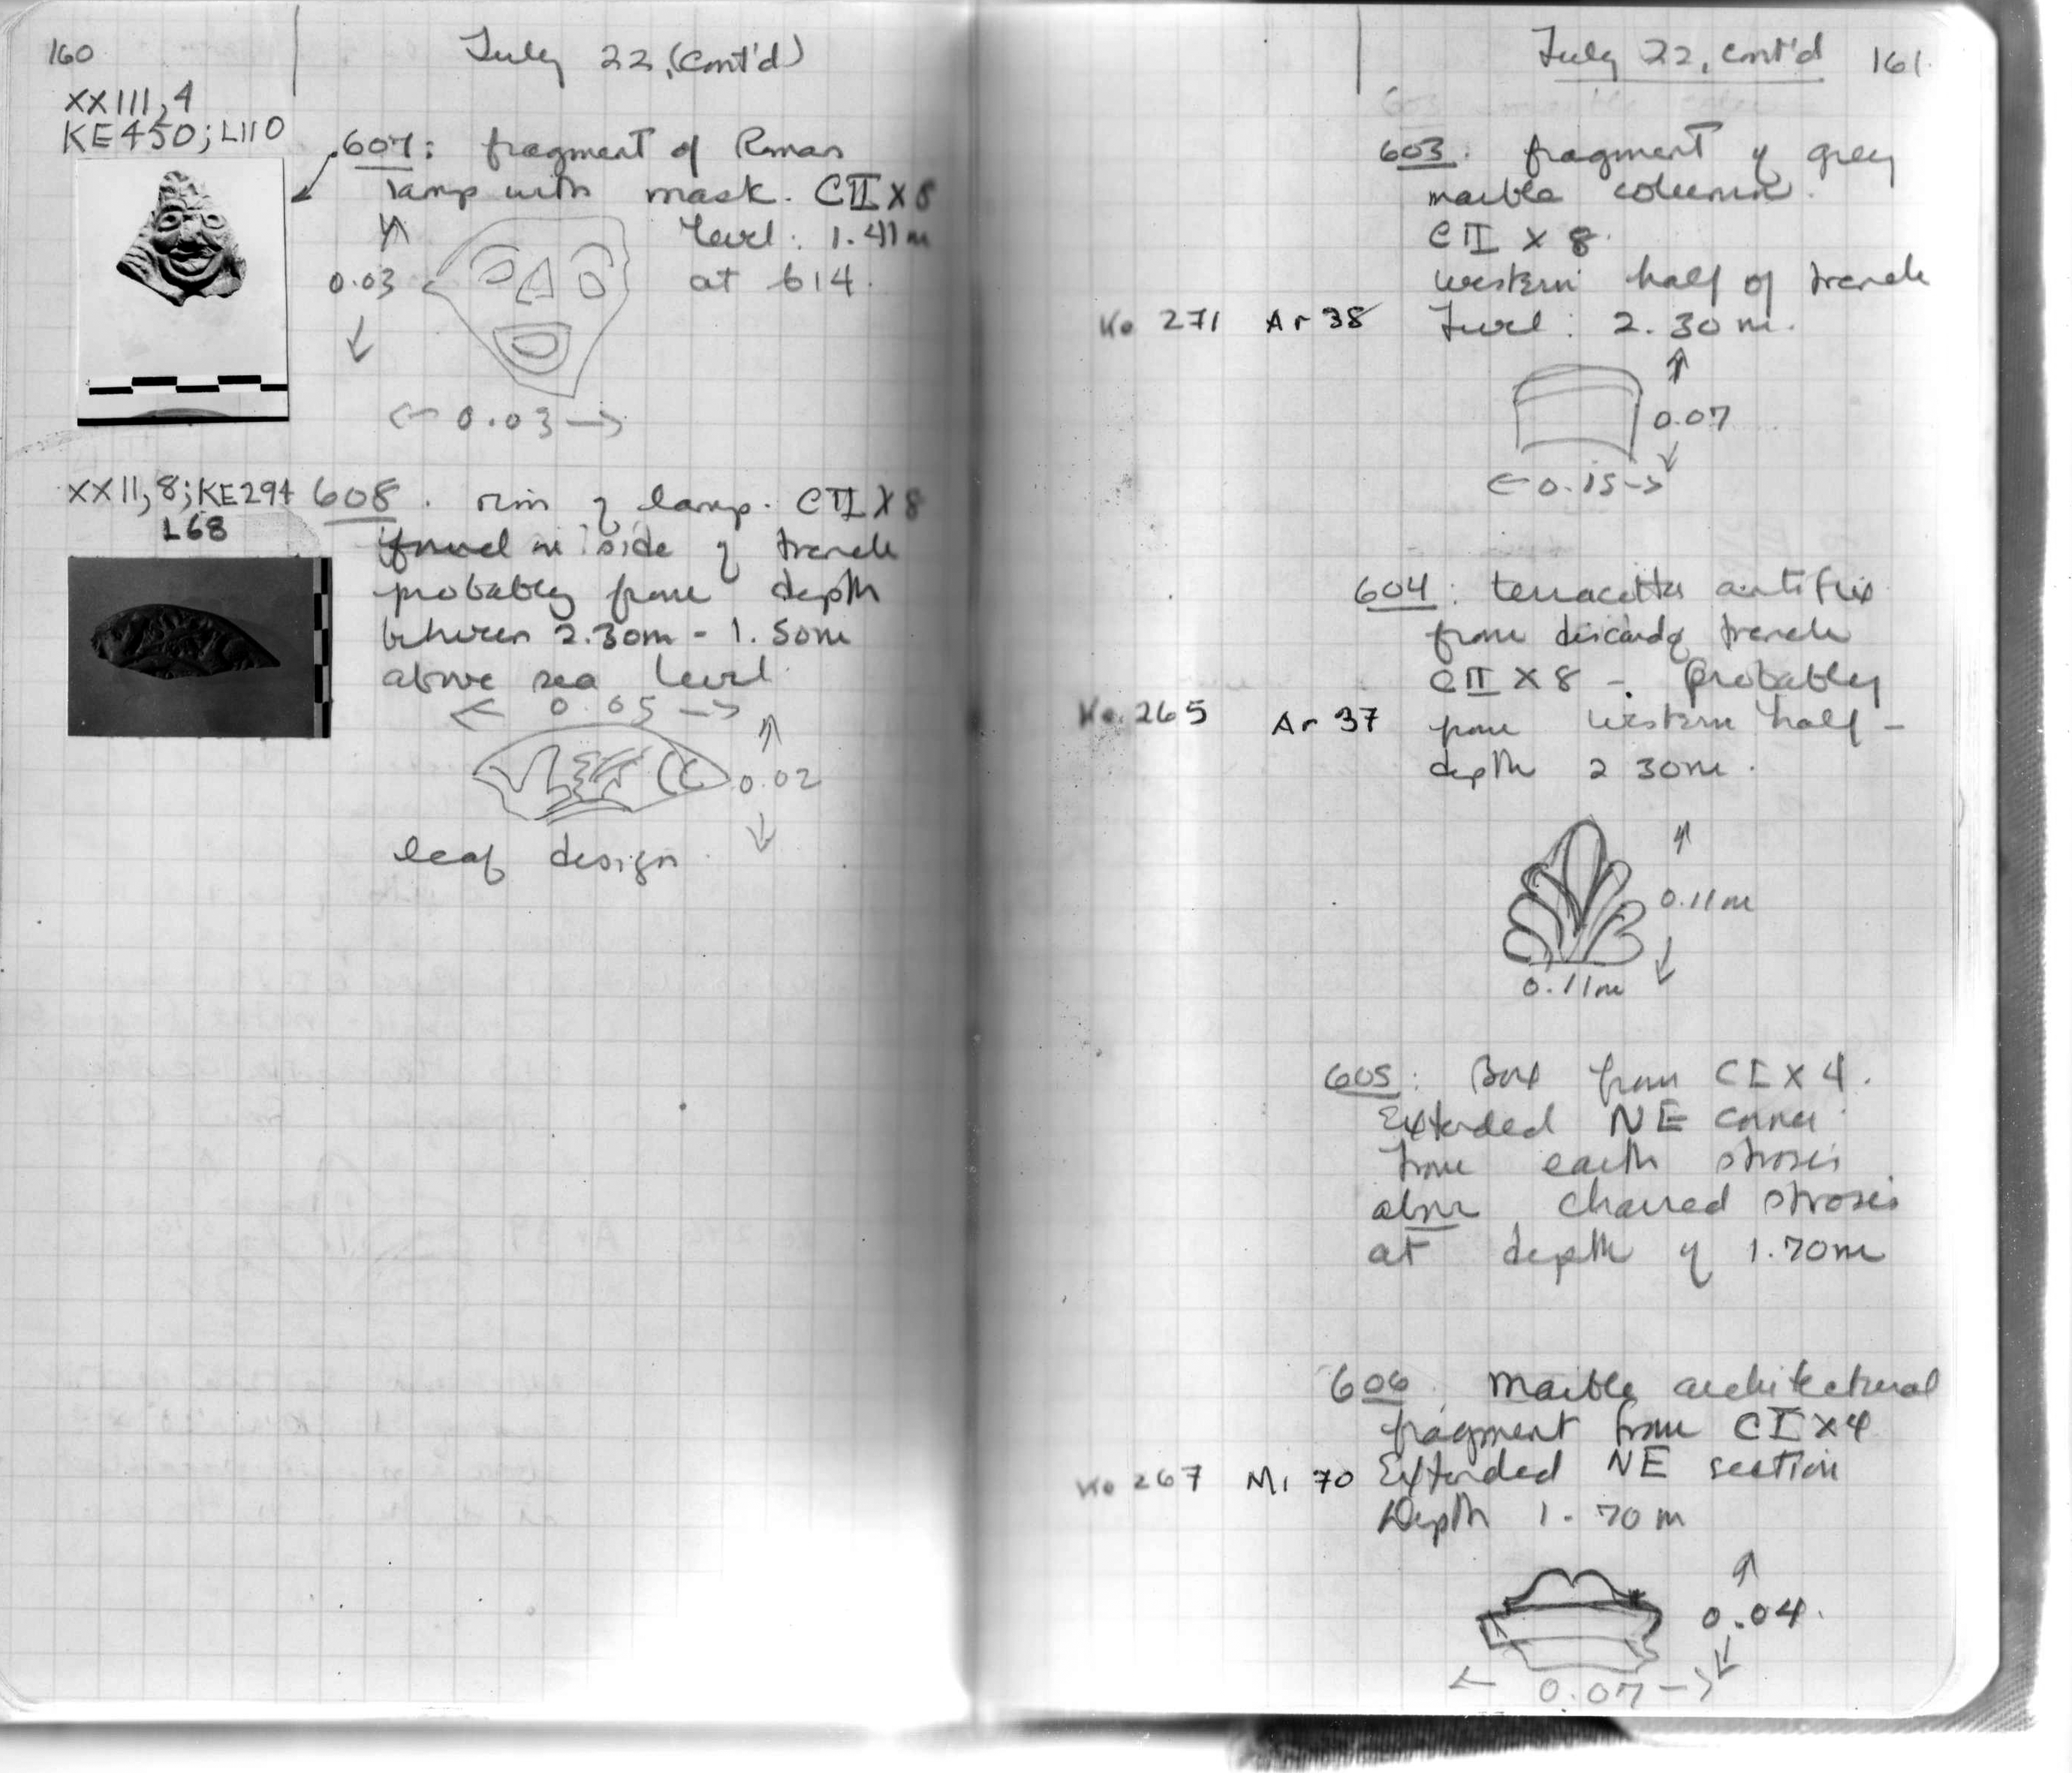 160
July 22, (Cont'd)
XXIII, 4
KE450; L110
607: fragment of Roman
lamp with mask. CII X 8
level: 1.41m
at 614.
0.03
0.03
XXII, 8; KE294
L68
608. rim of lamp. CII X 8
found in side of trench
probably from depth
between 2.30m - 1.50m
above sea level.
0.05
0.02
leaf design
July 22, cont'd
161
603. fragment of grey
marble column.
CII X 8.
western half of trench
Ke 271 Ar 38
Level: 2.30m.
0.07
0.15
604: terracotta antifix
from discard of trench
CII X 8 - Probably
Ke. 265 Ar 37
from western half -
depth 2 30m.
0.11m
0.11m
605: Box from CI X 4.
Extended NE corner
from earth strosis
above charred strosis
at depth of 1.70m
606. Marble architectural
fragment from CI X 4
Ke 267 Mi 70
Extended NE section
Depth 1.70m
0.04.
0.07